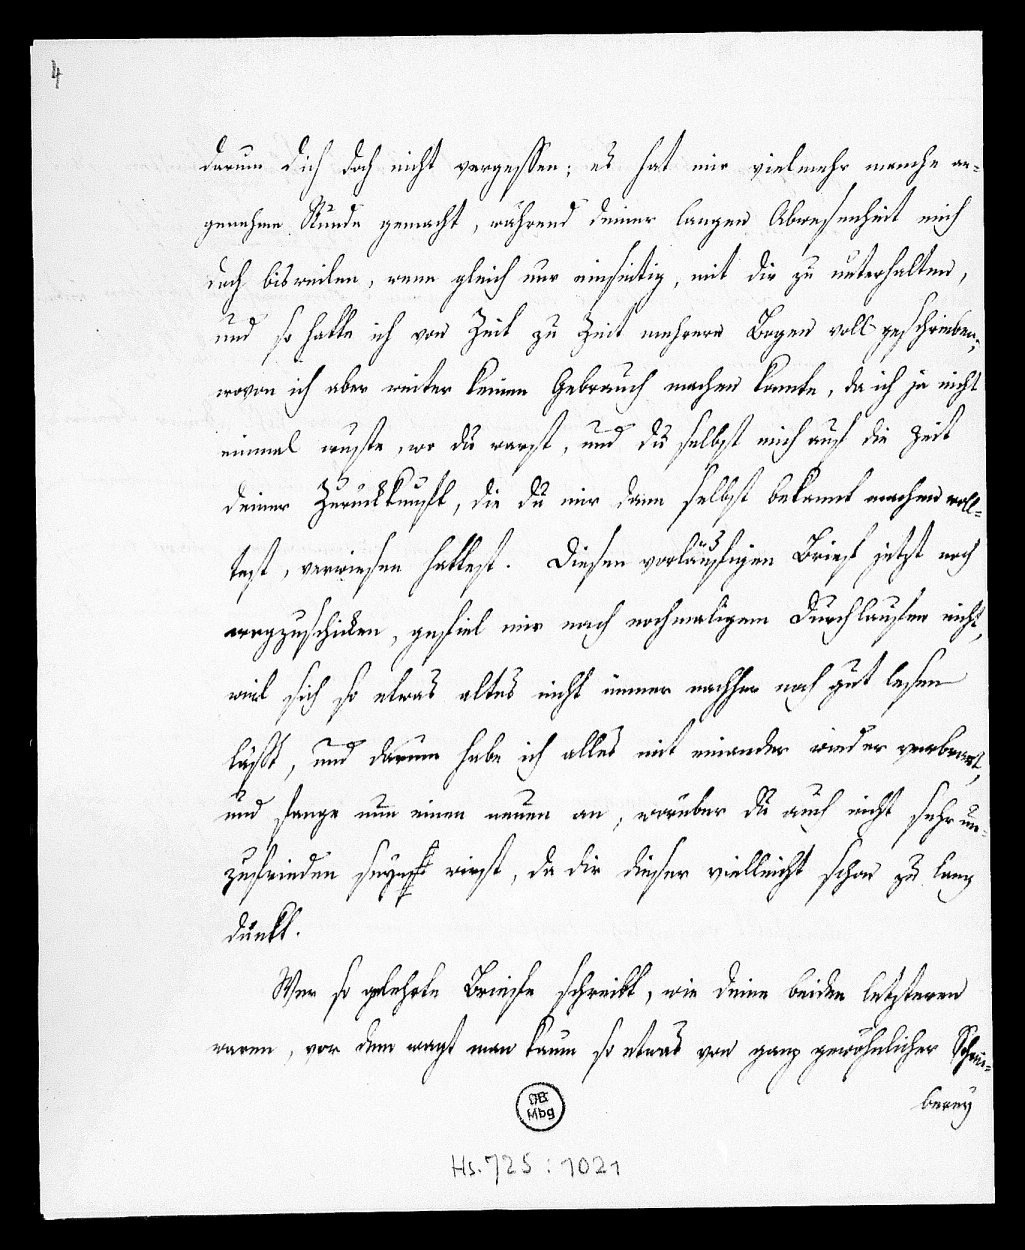 4
darum dich doch nicht vergessen; es hat mir vielmehr manche an-
genehme Stunde gemacht, während deiner langen Abwesenheit mich
doch bisweilen, wenn gleich nur einseitig, mit dir zu unterhalten,
und so hatte ich von Zeit zu Zeit mehrere Bogen voll geschrieben,
wovon ich aber weiter keinen Gebrauch machen konnte, da ich ja nicht
einmal wuste, wo du warst, und du selbst mich auf die Zeit
deiner Zurückkunft, die du mir dann selbst bekannt machen woll-
test, verwiesen hattest. Diesen vorläufigen Brief jetzt noch
wegzuschicken, gefiel mir nach nochmaligem Durchlaufen nicht,
weil sich so etwas altes nicht immer nachher noch gut lesen
läßt, und darum habe ich alles mit einander wieder verbrant,
und fange nun einen neuen an, worüber du auch nicht sehr un-
zufrieden seyn wirst, da dir dieser vielleicht schon zu lang
dünkt.
Wer so gelehrte Briefe schreibt, wie deine beiden letzteren
waren, vor dem wagt man kaum so etwas von ganz gewöhnlicher Schrei-
berey
UB
Mbg
Hs. 725 : 1021